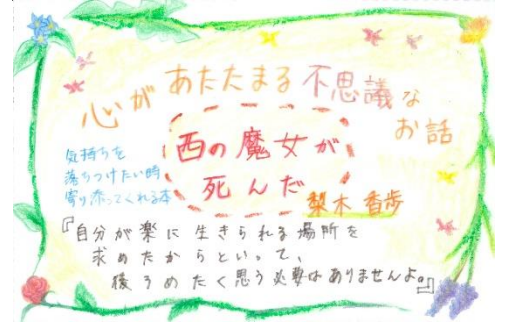 心があたたまる不思議な
お話
気持ちを
落ちつけたい時
寄り添ってくれる本
西の魔女が
死んだ
梨木 香歩
『自分が楽に生きられる場所を
求めたからといって、
後ろめたく思う必要はありませんよ。』